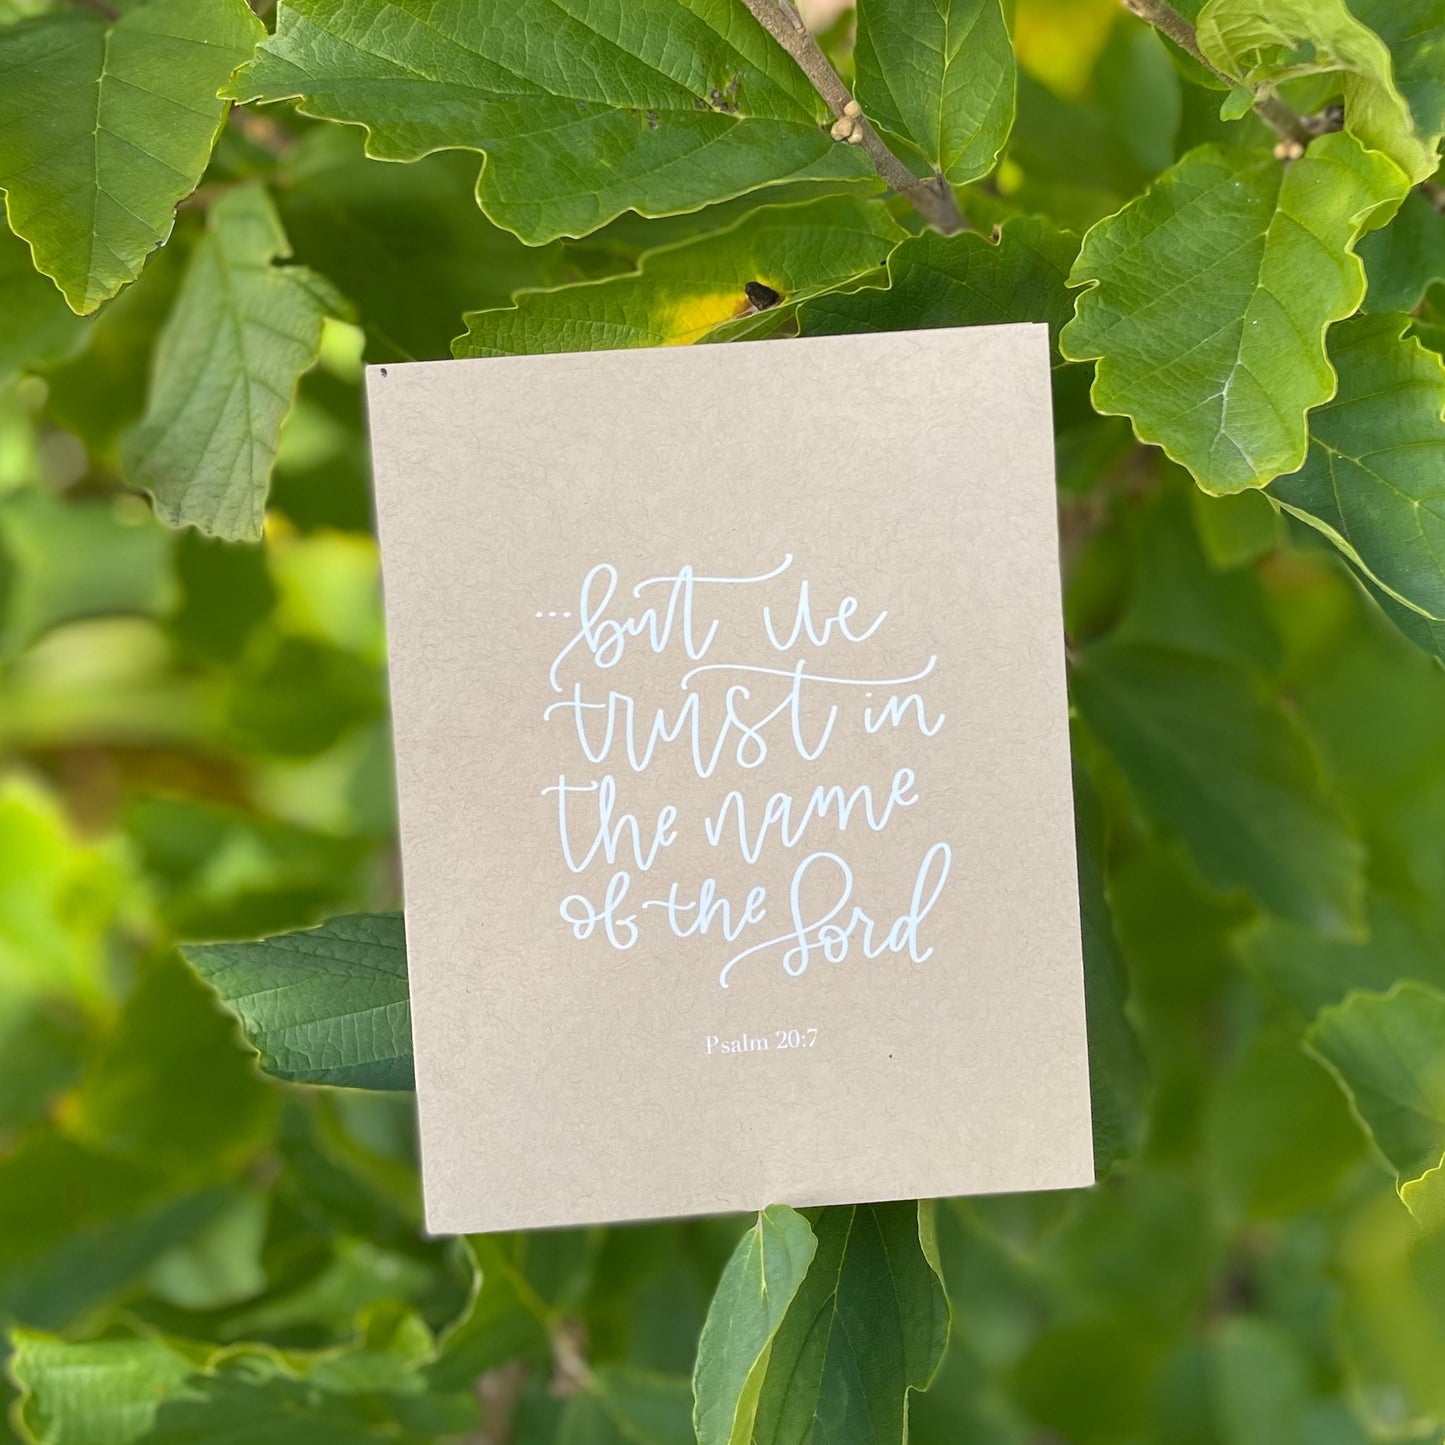 ...but we
trust in
the name
of the Lord
Psalm 20:7